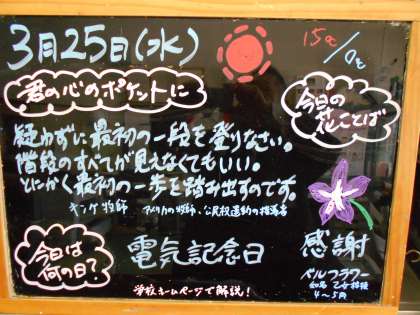 3月25日(水)
15℃/0℃
君の心のポケットに
疑わずに最初の一段を登りなさい。
階段のすべてが見えなくてもいい。
とにかく最初の一歩を踏み出すのです。
キング牧師 アメリカの牧師、公民権運動の指導者
今日の
花ことば
感謝
ベルフラワー
4〜5月
今日は
何の日?
電気記念日
学校ホームページで解説!